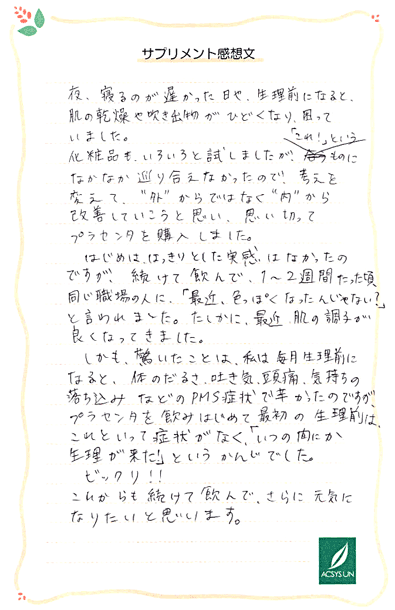 サプリメント感想文
夜、寝るのが遅かった日や、生理前になると、
肌の乾燥や吹き出物がひどくなり、困って
いました。
「これ！」という
化粧品も、いろいろと試しましたが、ものに
なかなか巡り合えなかったので、考えを
変えて、"外"からではなく"内"から
改善していこうと思い、思い切って
プラセンタを購入しました。
はじめは、はっきりとした実感はなかったの
ですが、続けて飲んで、1〜2週間たった頃
同じ職場の人に、「最近、色っぽくなったんじゃない？」
と言われました。たしかに、最近、肌の調子が
良くなってきました。
しかも、驚いたことは、私は毎月生理前に
なると、体のだるさ、吐き気、頭痛、気持ちの
落ち込みなどのPMS症状で辛かったのですが、
プラセンタを飲みはじめて最初の生理前は、
これといって症状がなく、「いつの間にか
生理が来た！」というかんじでした。
ビックリ！！
これからも続けて飲んで、さらに元気に
なりたいと思います。
ACSYSUN